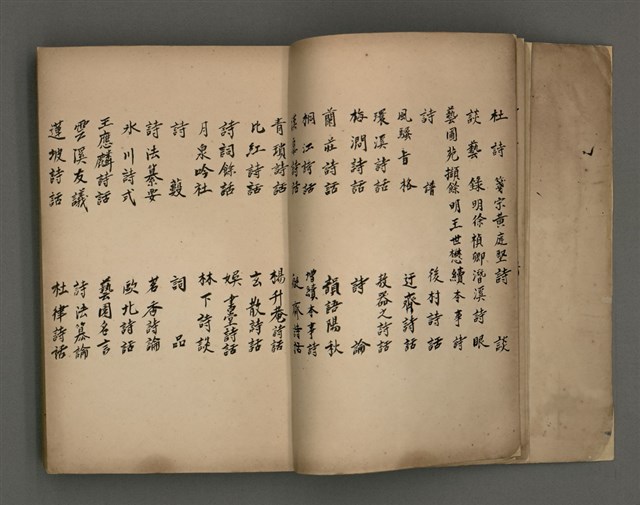 杜詩箋宗黃庭堅 詩談
談藝錄明徐楨卿 潛溪詩眼
藝圃苑擷餘明王世懋 續本事詩
詩情 後村詩話
風騷旨格 迂齋詩話
環溪詩話 敖器之詩話
梅澗詩話 詩論
蘭莊詩話 韻語陽秋
桐江詩話 增續本事詩
詩話 齋詩話
青瑣詩話 楊升菴詩話
比紅詩話 玄散詩話
詩詞餘話 娛書堂詩話
月泉吟社 林下詩談
詩藪 詞品
詩法纂要 茗香詩論
冰川詩式 歐北詩話
王應麟詩話 藝圃名言
雲溪友議 詩法纂論
蓮坡詩話 杜律詩話